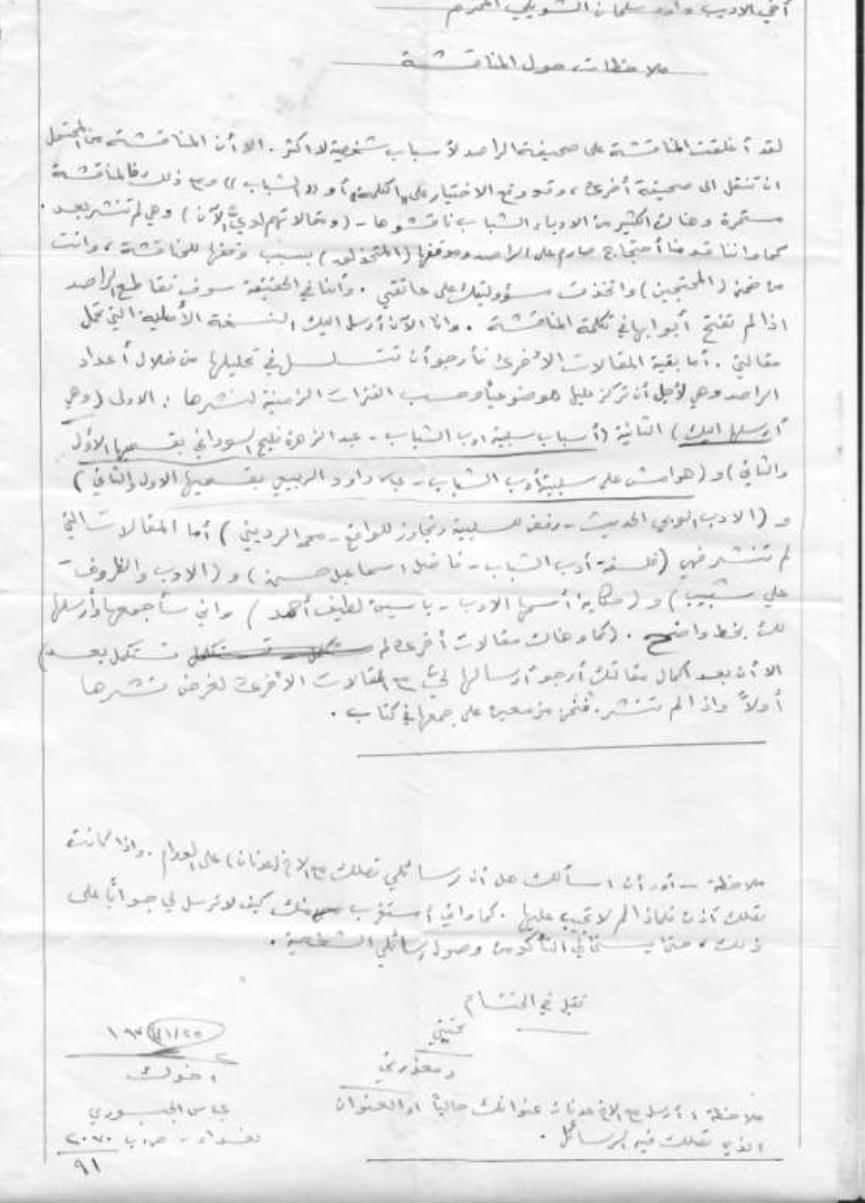 أخي الأديب داود سلمان الشويلي المحترم
ملاحظات حول المناقشة
لقد أغلقت المناقشة على صحيفة الراصد لأسباب شخصية لا اكثر . الا أن المناقشة من المحتمل
ان تنتقل الى صحيفة أخرى ، وقد وقع الاختيار على "الكلمة" أو ((الشباب)) ومع ذلك فالمناقشة
مستمرة وهناك الكثير من الادباء الشباب ناقشوها - (ومقالاتهم لديَّ الآن) وهي لم تنشر بعد .
كما واننا قدمنا أحتجاج صارم على الراصد وموقفها (المتخذ) بسبب وقفها للمناقشة ، وانت
من ضمن (المحتجين) واتخذت مسؤوليتك على عاتقي . وأننا في الحقيقة سوف نقاطع الراصد
اذا لم تفتح أبوابها في تكملة المناقشة . وانا الآن أرسل اليك النسخة الأصلية التي تحمل
مقالتي . أما بقية المقالات الأخرى فأرجو أن تتسلسل في تحليلها من خلال أعداد
الراصد وهي لأجل أن تركز عليها موضوعياً وحسب الفترات الزمنية لنشرها : الاولى (وهي
أرسلها اليك) الثانية (أسباب سلبية ادب الشباب - عبد الزهرة فليح السوداني بقسميها الأول
والثاني) و (هوامش على سلبية أدب الشباب - عباس داود الربيعي بقسميها الاول والثاني)
و (الادب العربي الحديث - رفض للسلبية وتجاوز للواقع - محمد الرديني) أما المقالات التي
لم تنشر فهي (فلسفة أدب الشباب - فاضل اسماعيل حسين) و (الادب والظروف -
علي شبيب) و (حكاية أسمها الادب - ياسين لطيف أحمد) واني سأجمعها وأرسلها
لك بخط واضح . (كما وهناك مقالات أخرى لم تستكمل بعد)
الا أن بعد اكمال مقالتك أرجو أرسالها لي مع المقالات الأخرى لغرض نشرها
أولاً واذا لم تنشر . فنحن مزمعين على جمعها في كتاب .
ملاحظة - أود أن اسألك هل أن رسائلي تصلك مع الاخ (عدنان) على الدوام . واذا كانت
تصلك أذن فلماذا لم لا تجيب عليها . كما واني أستغرب منك كيف لا ترسل لي جواباً على
ذلك ، حتى يتسنى لي التأكد من وصول رسائلي الشخصية .
تقبل في الختام
تحيتي
ومعذرتي
أخوك
عباس الجبوري
بغداد - ص.ب ٢٠٧٠
٩١
ملاحظة : أرسل مع الاخ عدنان عنوانك حالياً او العنوان
الذي تصلك فيه الرسائل .